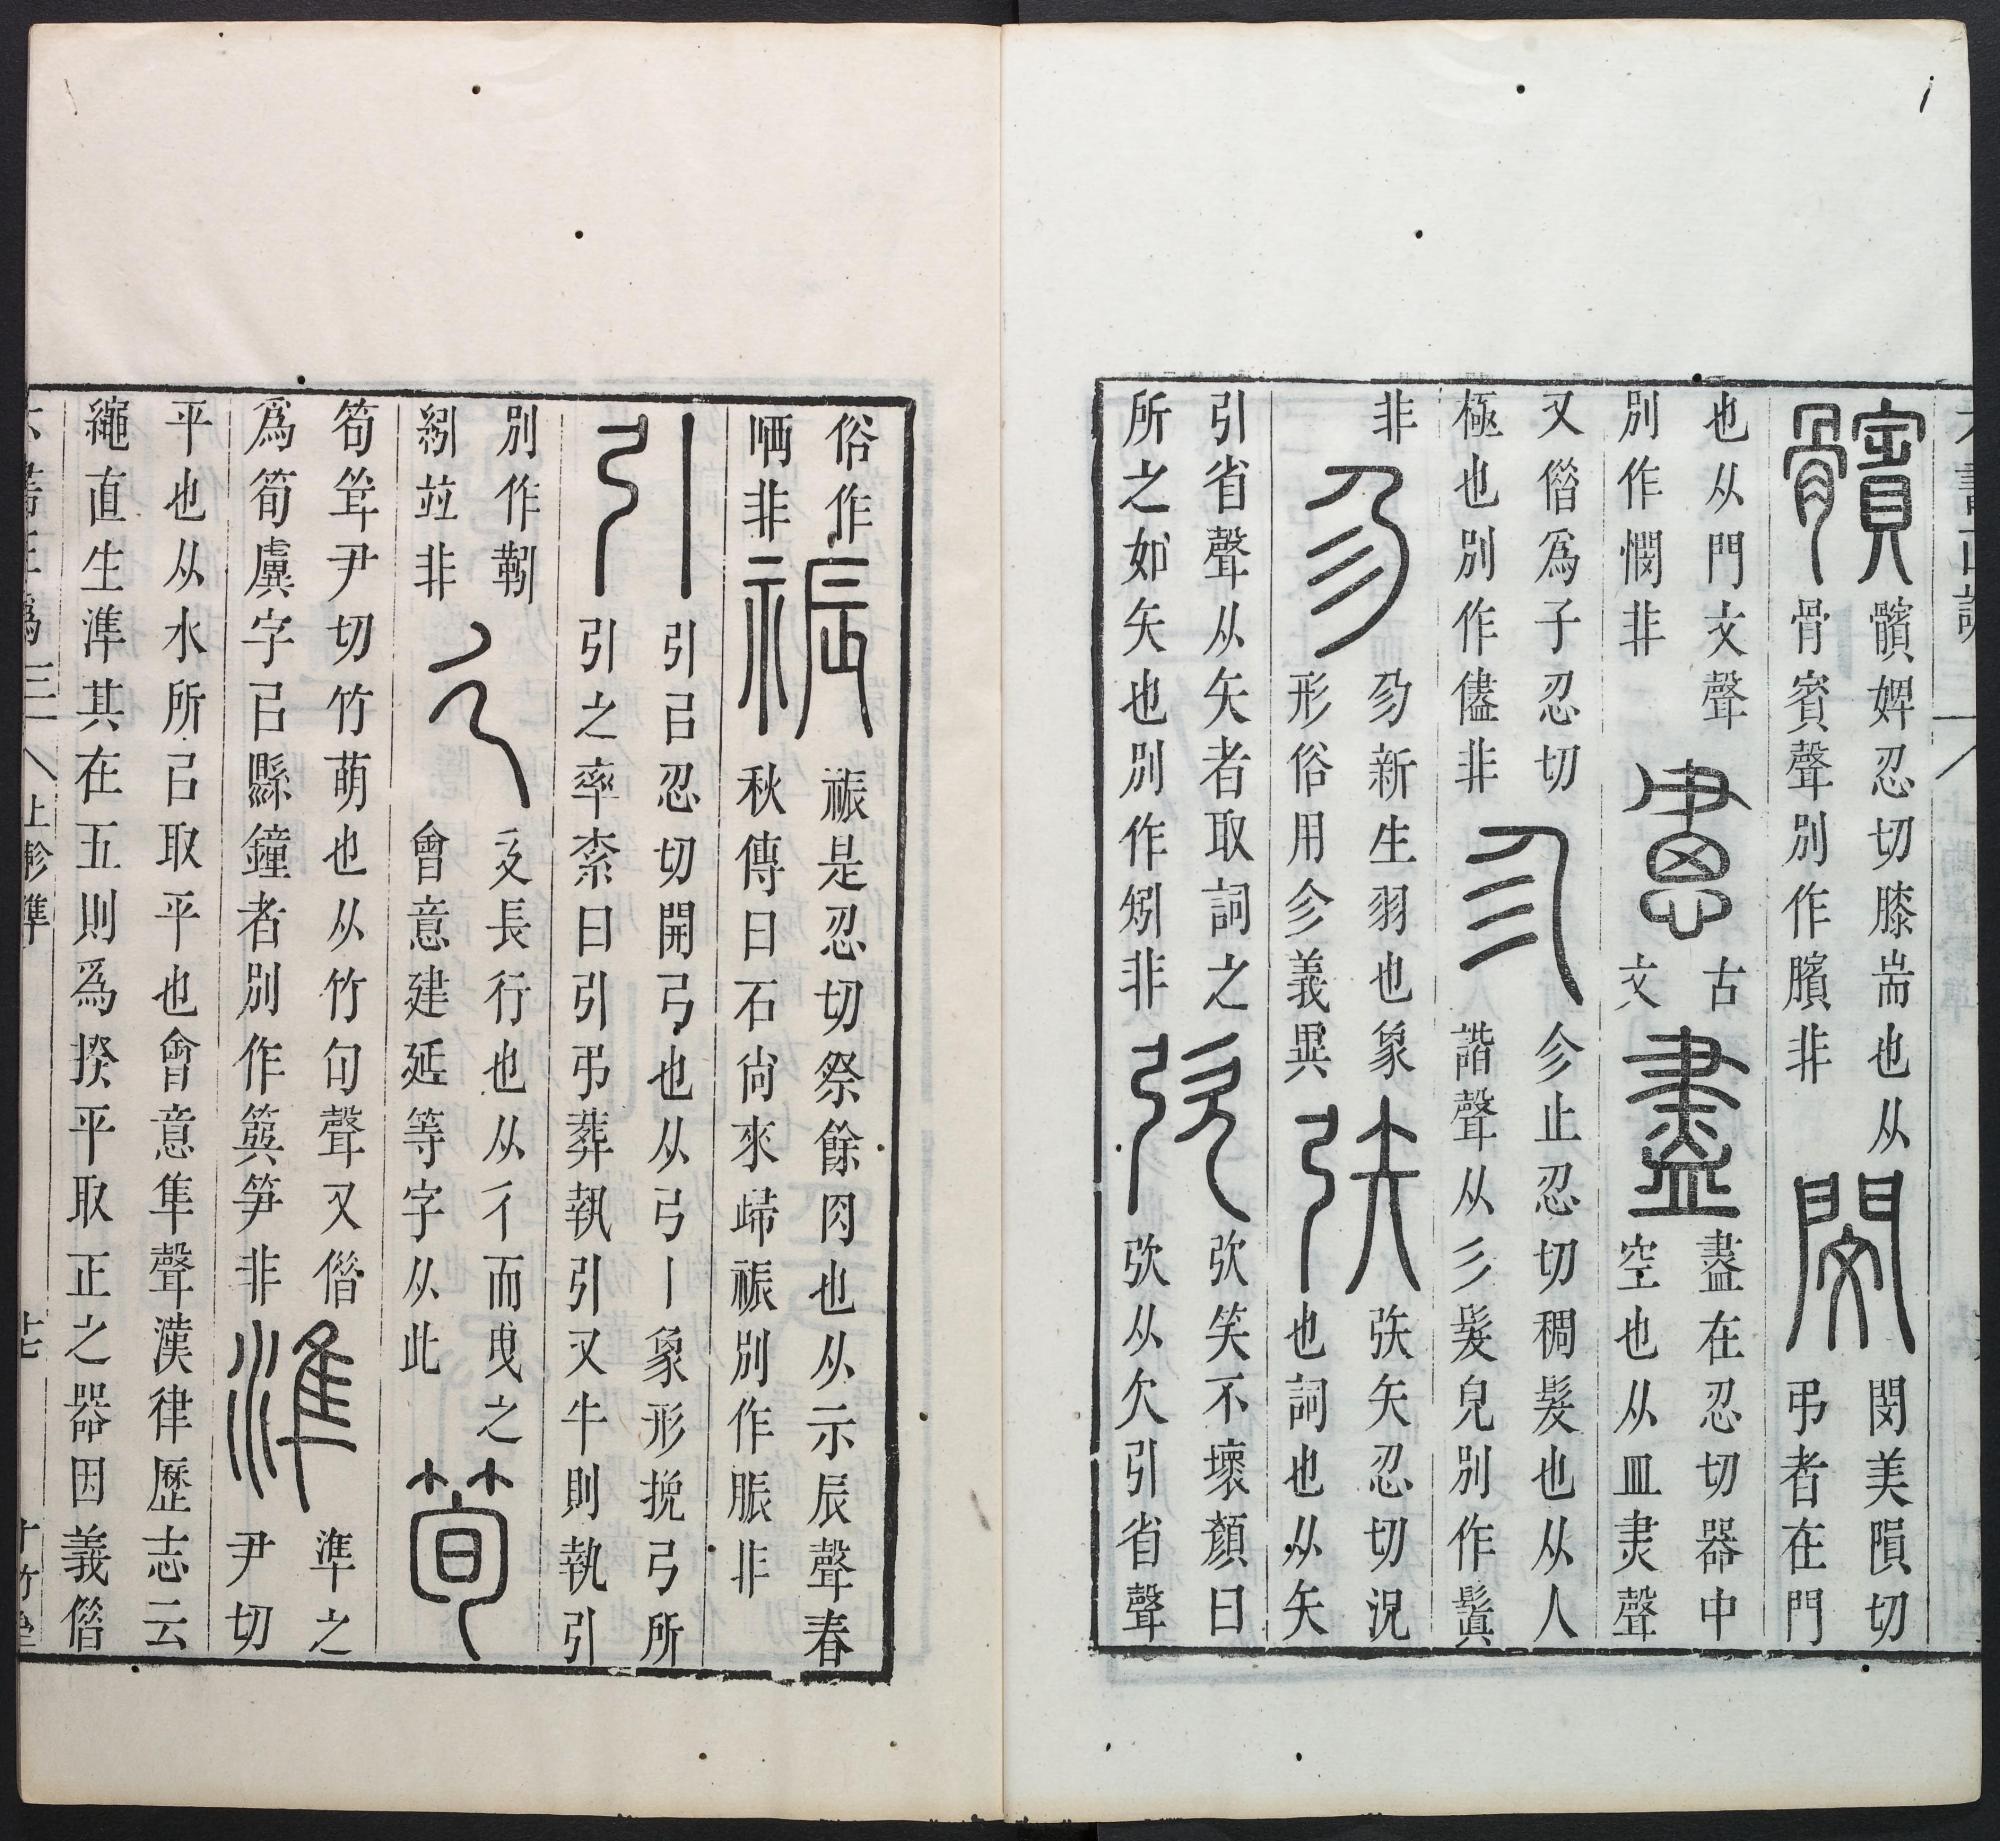 髕
髕婢忍切膝耑也从
骨賓聲別作臏非
閔
閔美隕切
弔者在門
也从門文聲
別作憫非
古
文
盡
盡在忍切器中
空也从皿㶳聲
又偺爲子忍切
極也別作儘非
㐱
㐱止忍切稠髮也从人
諧聲从彡髮皃別作鬒
非
新生羽也象
形俗用㐱義異
矤
矤矢忍切況
也詞也从矢
引省聲从矢者取詞之
所之如矢也別作矧非
弞
弞笑不壞顏曰
弞从欠引省聲
俗作
哂非
祳
祳是忍切祭餘肉也从示辰聲春
秋傳曰石尙來歸祳別作脤非
引
引㠯忍切開弓也从弓丨象形挽弓所
引之率紊曰引引弔葬執引又牛則執引
別作靷
紖竝非
廴
廴長行也从彳而曳之
會意建延等字从此
筍
筍聳尹切竹萌也从竹旬聲又偺
爲筍虡字㠯縣鐘者別作簨笋非
準
準之
尹切
平也从水所㠯取平也會意隼聲漢律歷志云
繩直生準其在五則爲揆平取正之器因義偺
六書正譌三 上軫準